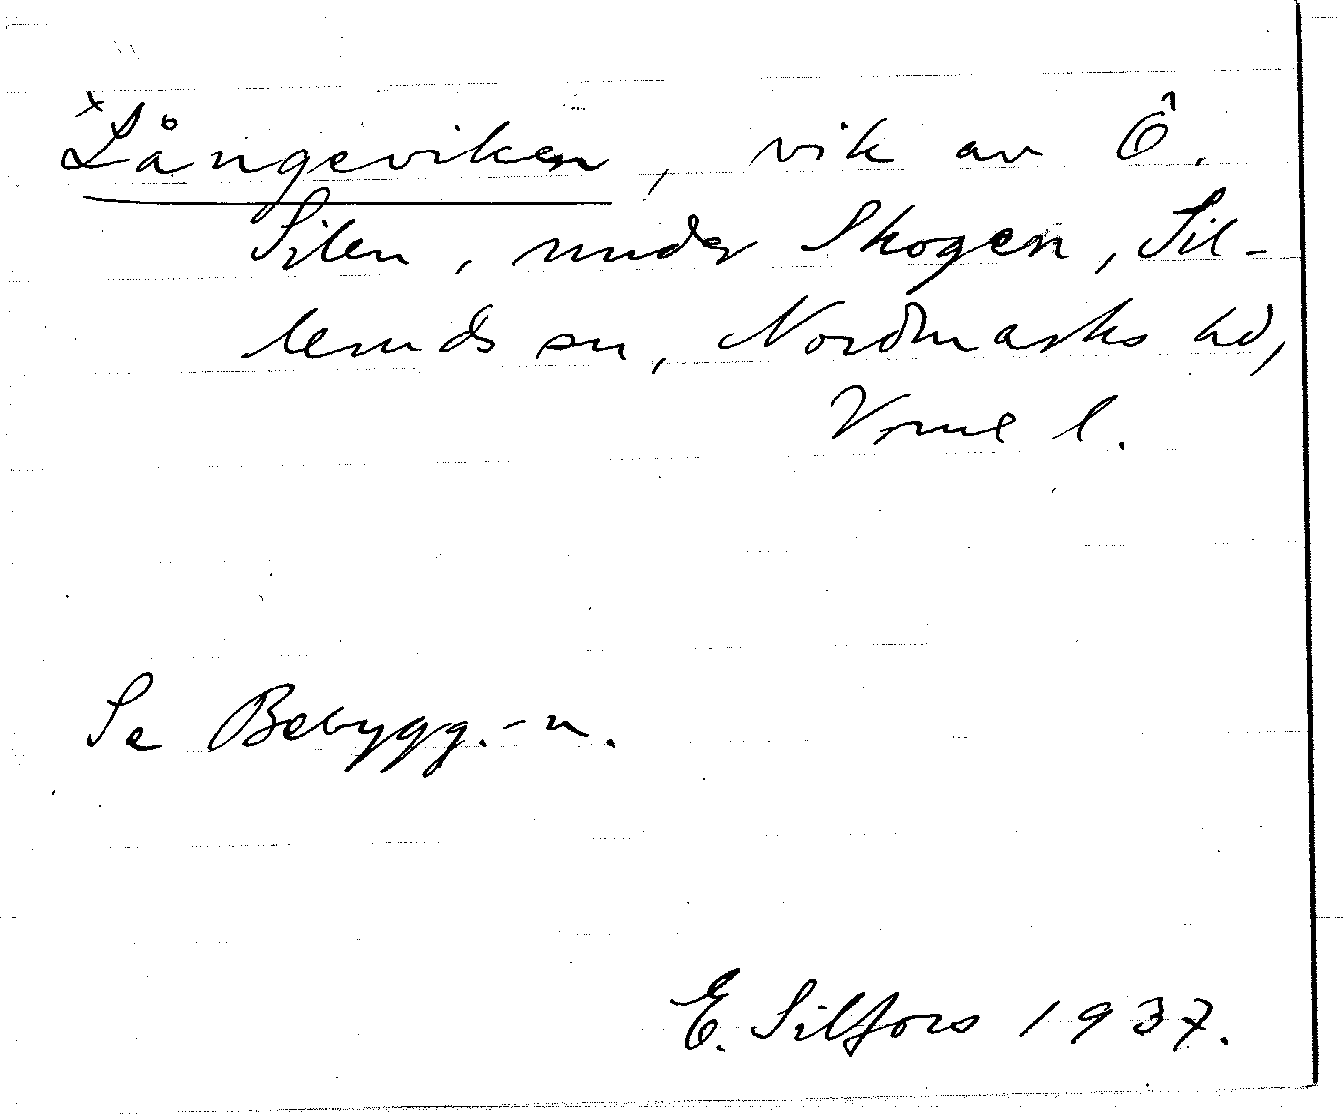 x Långeviken, vik av Ö.
Silen, under Skogen, Sil-
leruds sn, Nordmarks hd,
Vrml l.
Se Bebygg.-n.
E. Silfors 1937.